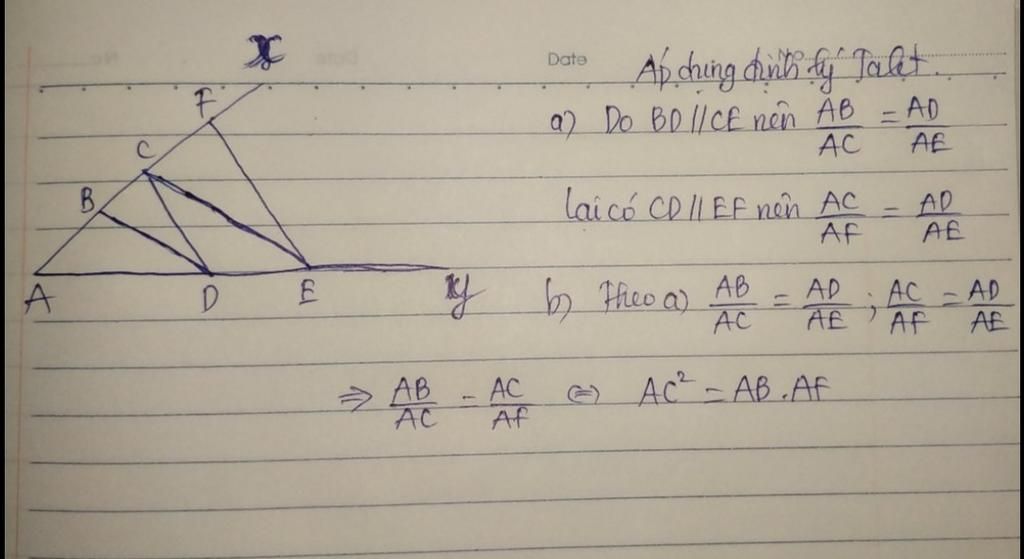 Date
Áp dụng định lý Talet.
a) Do BD // CE nên AB/AC = AD/AE
lại có CD // EF nên AC/AF = AD/AE
b) Theo a) AB/AC = AD/AE ; AC/AF = AD/AE
⇒ AB/AC = AC/AF ⇔ AC² = AB . AF
x
F
C
B
A D E y